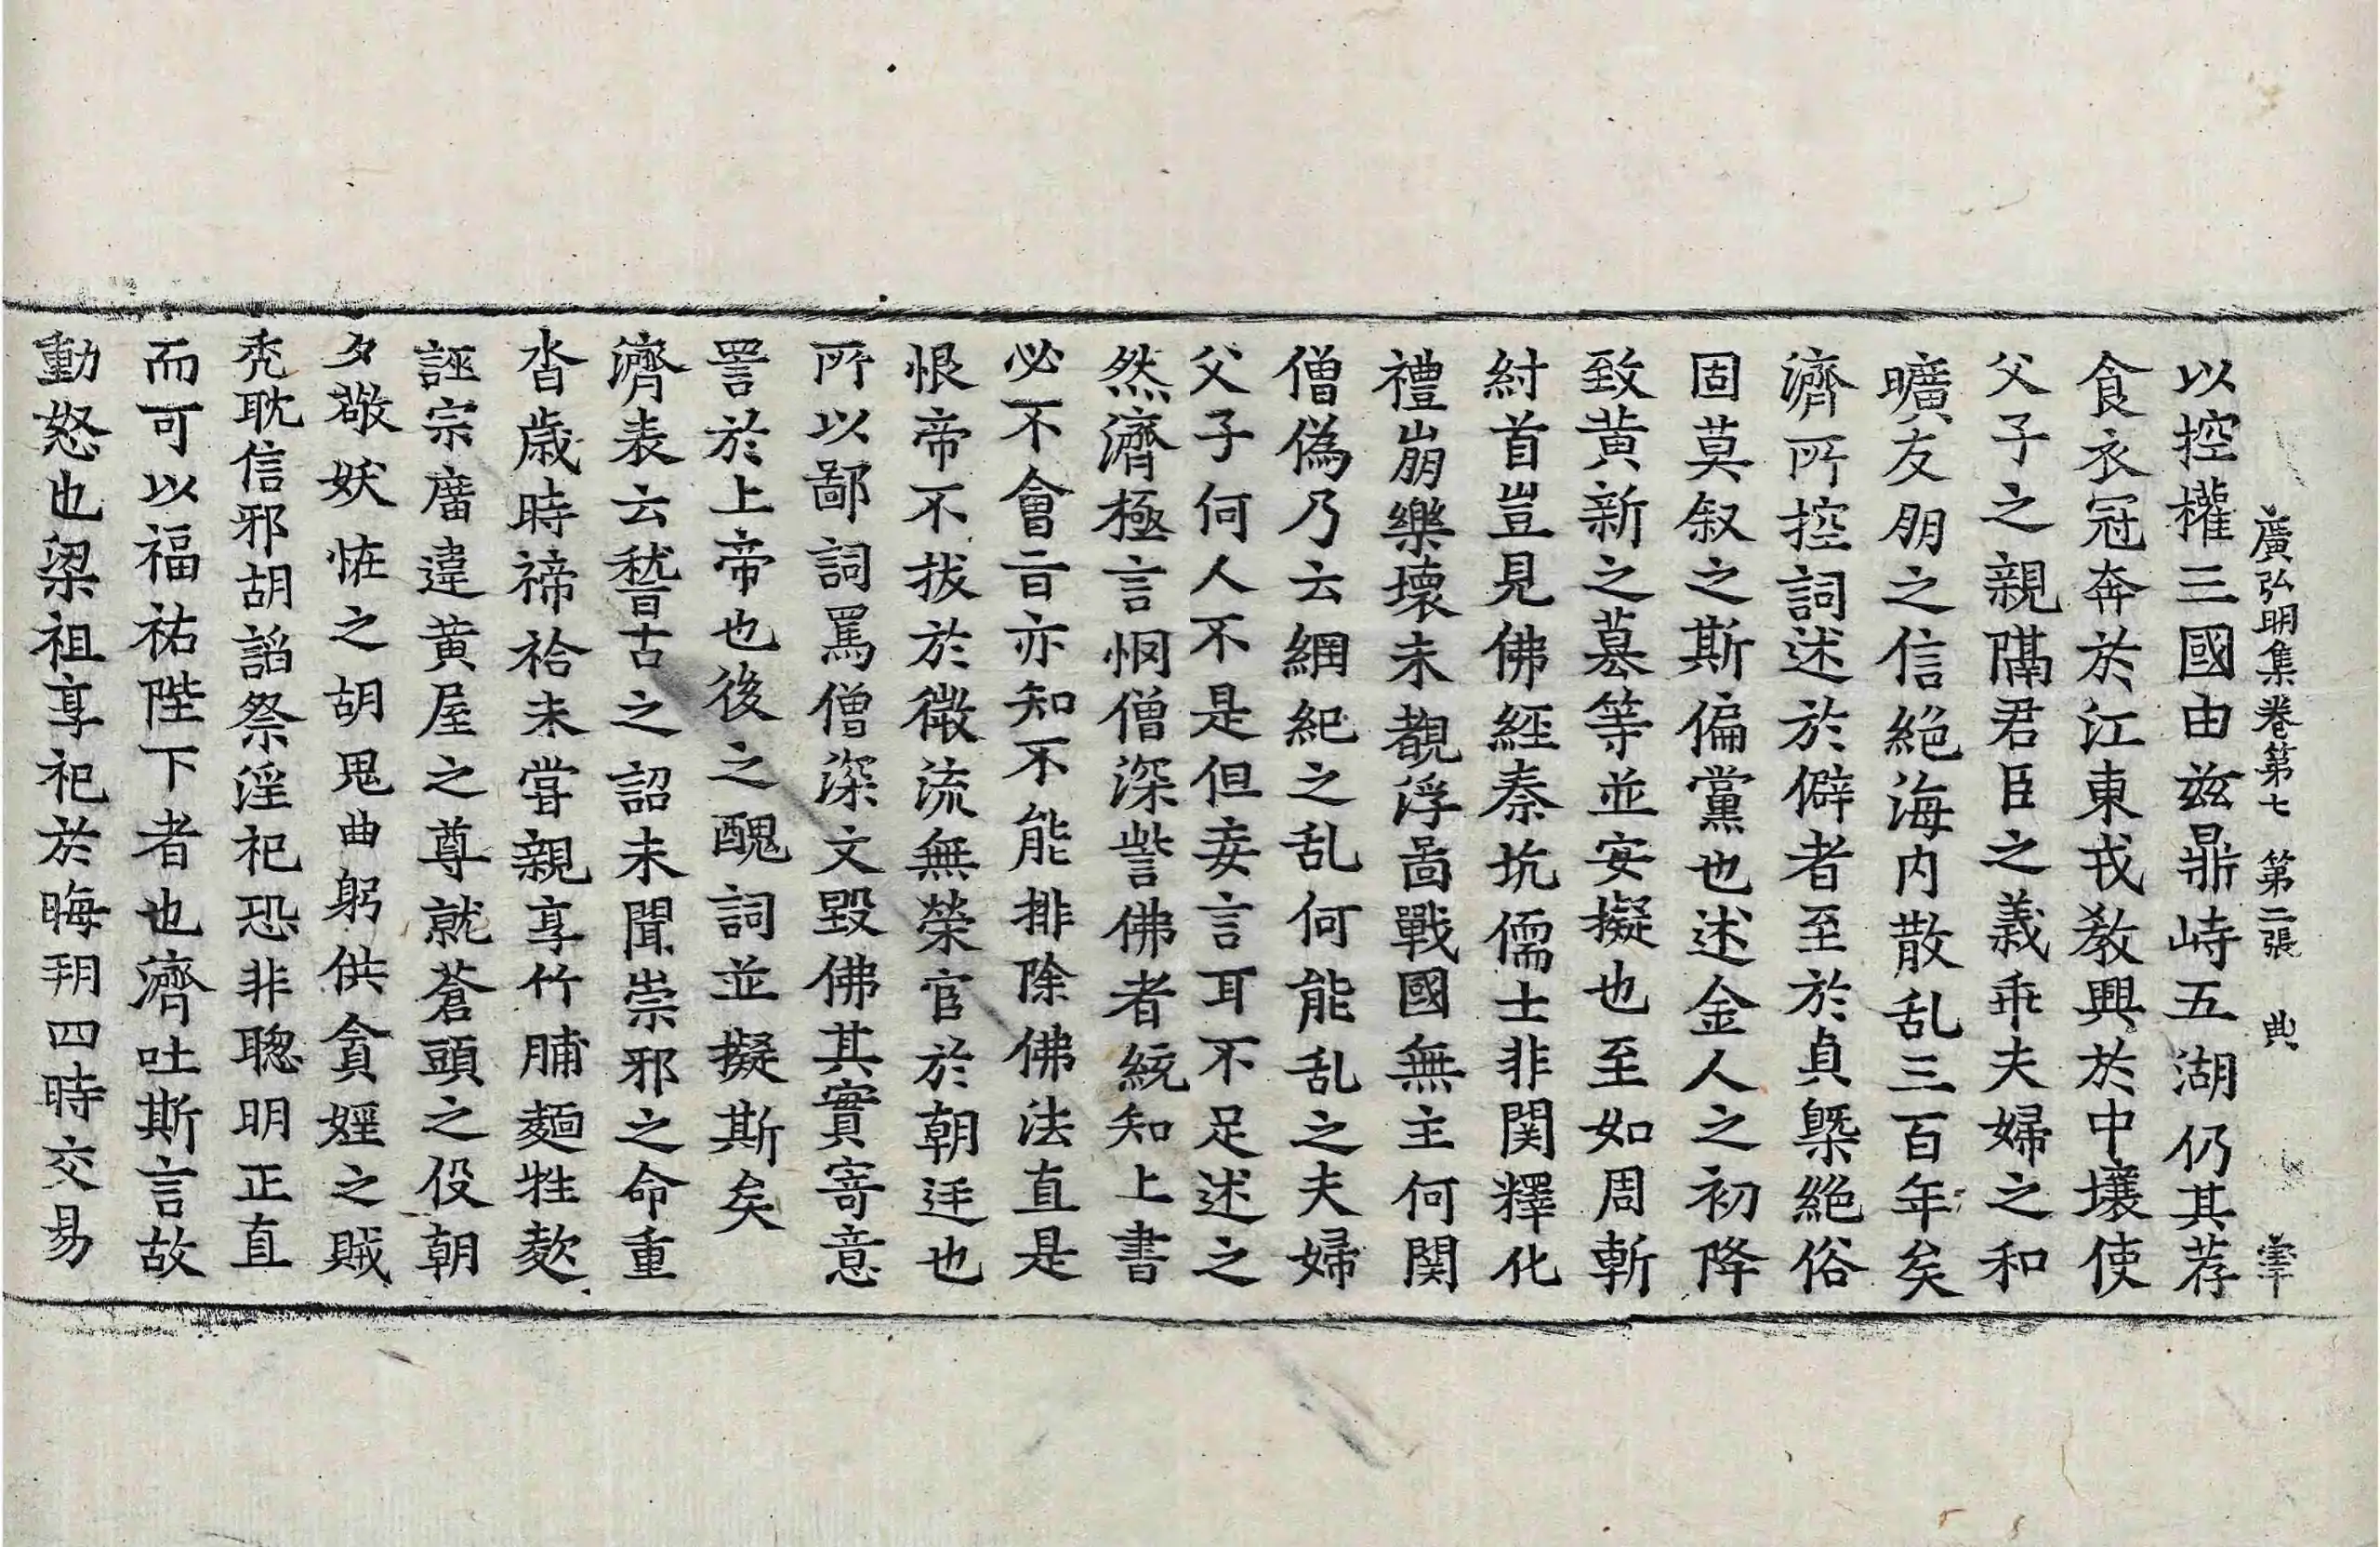 廣弘明集卷第七 第二張 典
以控權三國由兹鼎峙五湖仍其荐
食衣冠奔於江東戎教興於中壤使
父子之親隔君臣之義乖夫婦之和
曠友朋之信絕海内散乱三百年矣
濟所控詞述於僻者至於貞槩絕俗
固莫叙之斯偏黨也述金人之初降
致黄新之墓等並安擬也至如周斬
紂首豈見佛經秦坑儒士非関釋化
禮崩樂壞未覩浮啚戰國無主何関
僧偽乃云綱紀之乱何能乱之夫婦
父子何人不是但妄言耳不足述之
然濟極言惘僧深訾佛者統知上書
必不會旨亦知不能排除佛法直是
恨帝不拔於微流無榮官於朝廷也
所以鄙詞罵僧深文毀佛其實寄意
詈於上帝也後之醜詞並擬斯矣
濟表云嵇古之詔未聞崇邪之命重
沓歲時禘袷未甞親享竹脯麵牲欺
誣宗廟違黄屋之尊就蒼頭之役朝
夕敬妖恠之胡鬼曲躬供貪婬之賊
秃耽信邪胡諂祭淫祀恐非聰明正直
而可以福祐陛下者也濟吐斯言故
動怒也梁祖享祀於晦朔四時交易